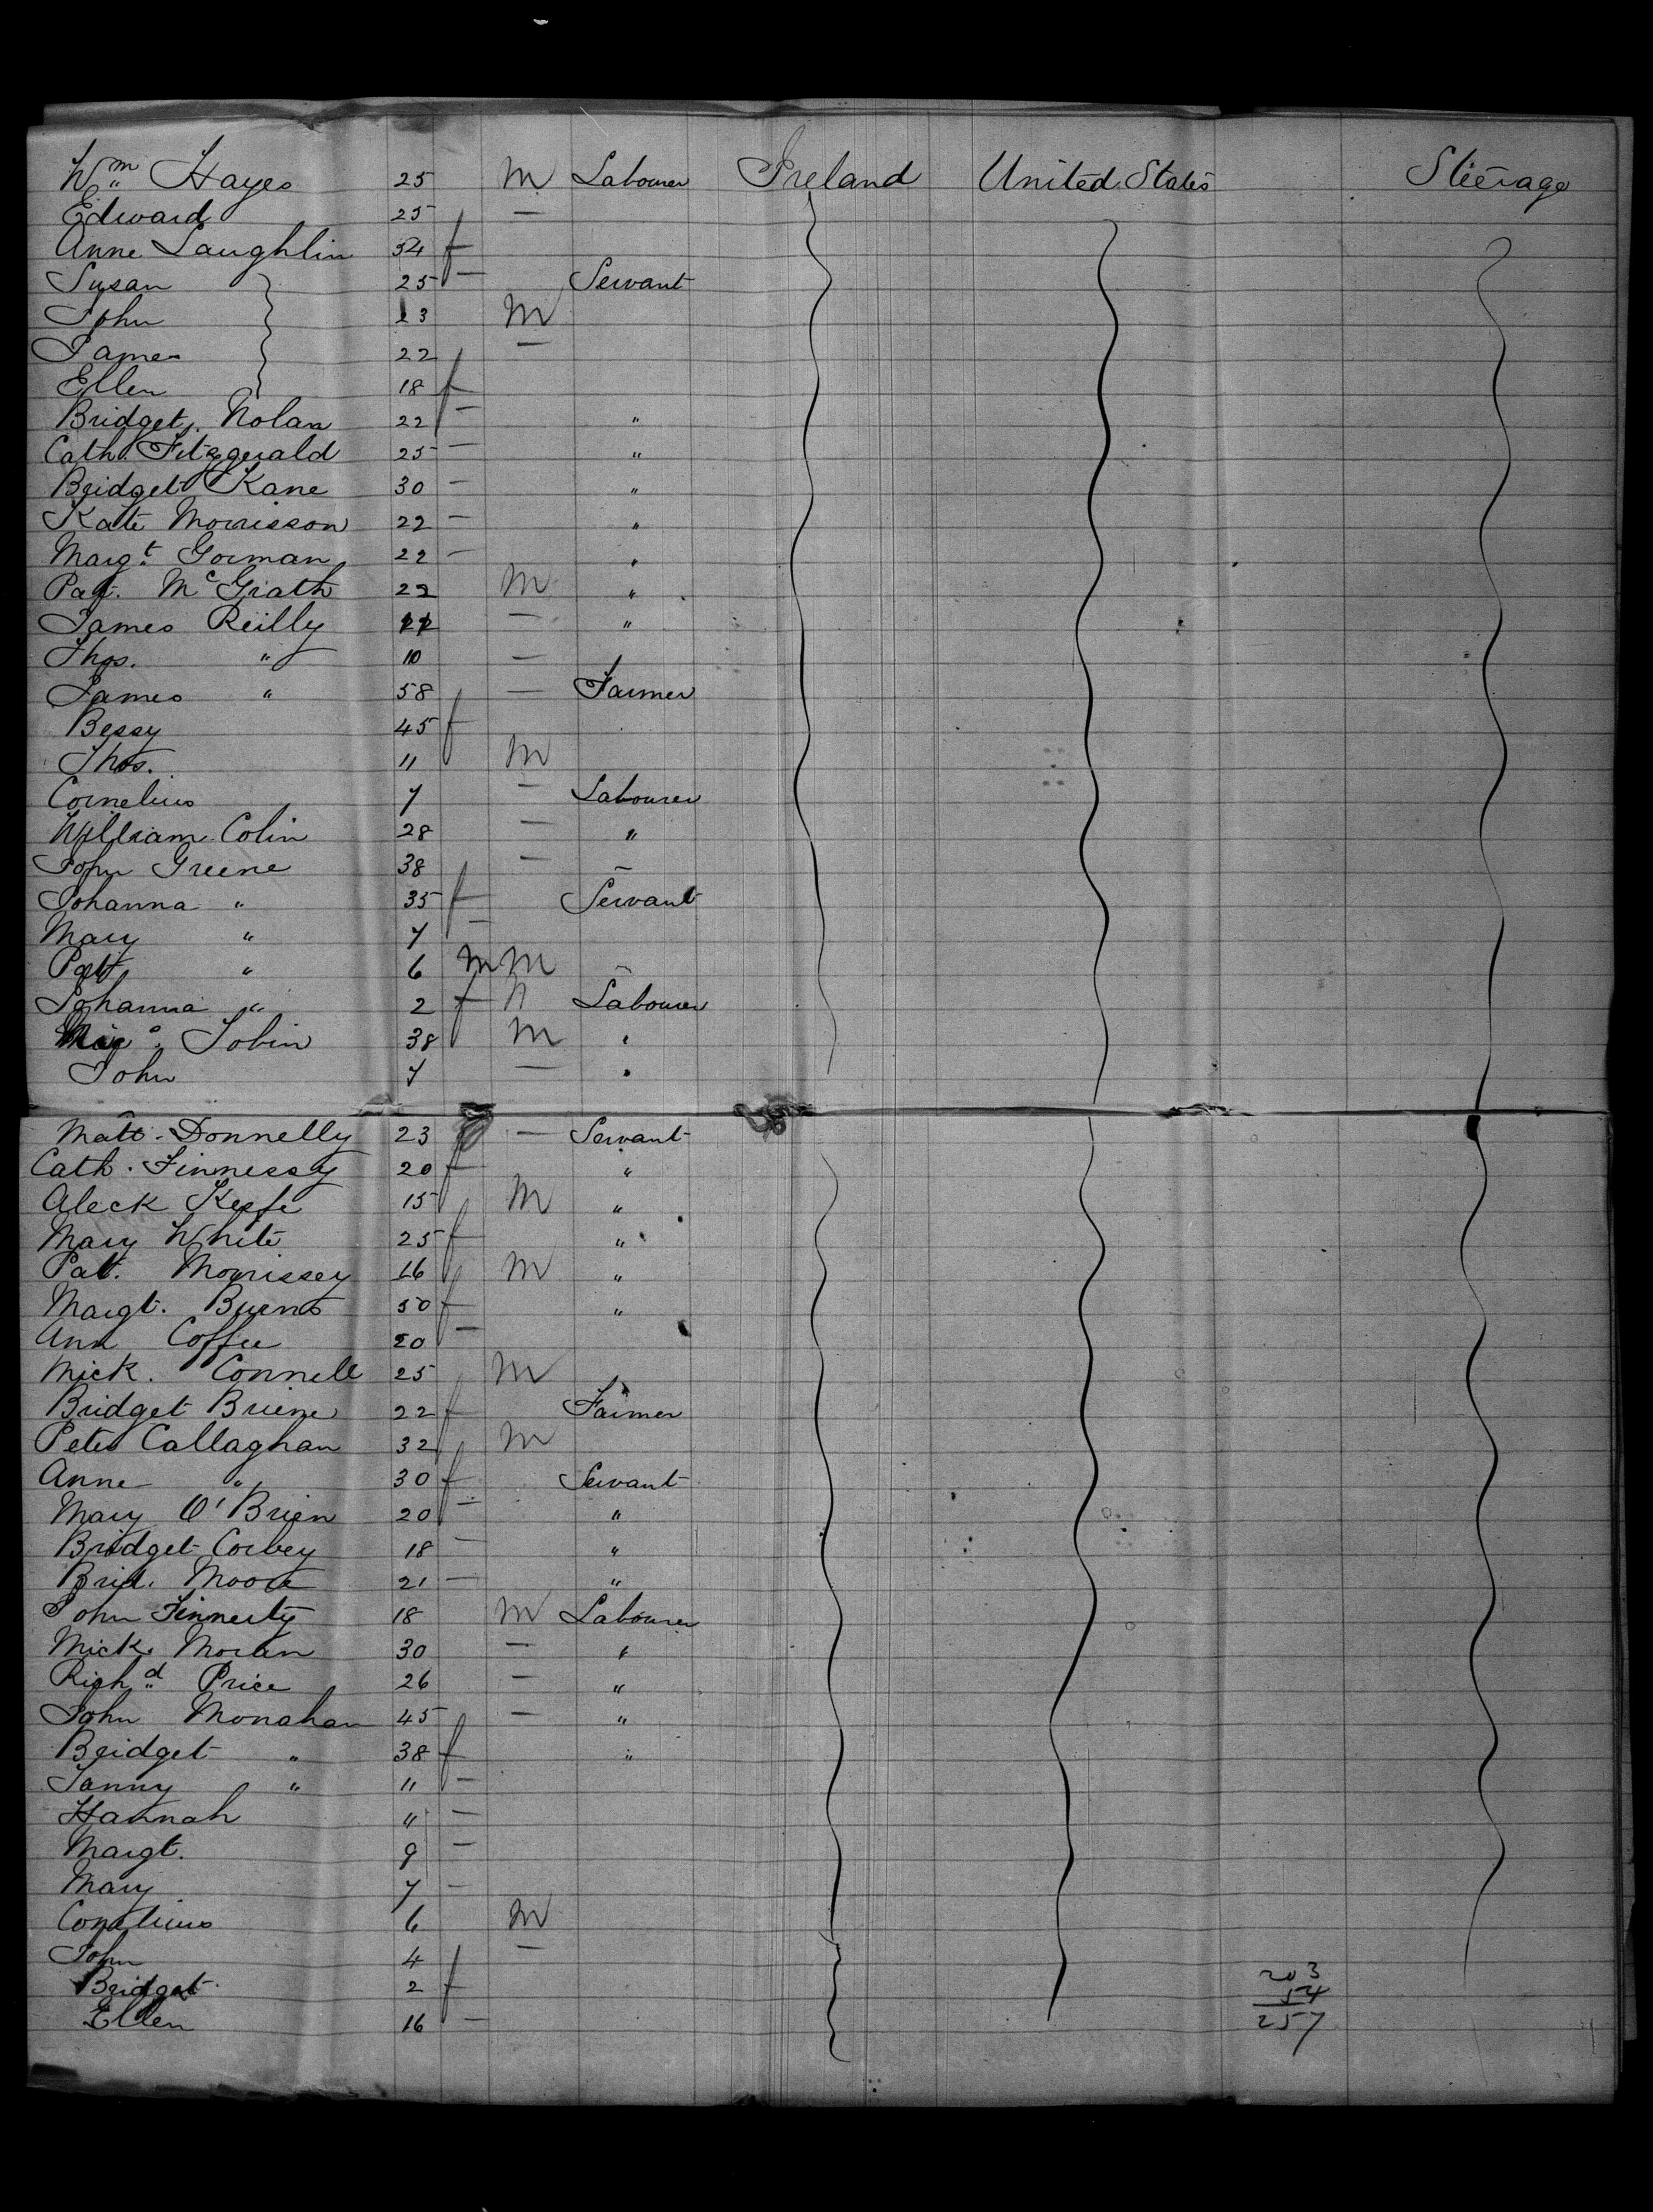 Wm Hayes 25 M Labourer Ireland United States Steerage
Edward 25 —
Anne Laughlin 54 f
Susan 25 — Servant
John 23 M
James 22 —
Ellen 18 f
Bridget Nolan 22 — "
Cath. Fitzgerald 25 — "
Bridget Kane 30 — "
Kate Morrisson 22 — "
Margt Gorman 22 — "
Pat. McGrath 22 M "
James Reilly — "
Thos. " 10 —
James " 58 — Farmer
Bessy 45 f
Thos. 11 M
Cornelius 7 — Labourer
William Colin 28 — "
John Greene 38 —
Johanna " 35 f Servant
Mary " 7 —
Patt " 6 m M
Johanna " 2 f Labourer
Tobin 38 M "
John 7 — "
Matt. Donnelly 23 — Servant
Cath. Finnessy 20 f "
Aleck Keefe 15 M "
Mary White 25 f "
Pat. Morrissey 16 M "
Margt. Burns 50 f "
Ann Coffee 20 —
Mick. Connell 25 M
Bridget Briene 22 f Farmer
Peter Callaghan 32 M
Anne " 30 f Servant
Mary O'Brien 20 — "
Bridget Corbey 18 — "
Brid. Moore 21 — "
John Finnerty 18 M Labourer
Mick. Moran 30 — "
Richd Price 26 — "
John Monahan 45 — "
Bridget " 38 f "
Fanny " 11 —
Hannah " —
Margt. 9 —
Mary 7 —
Cornelius 6 M
John 4 —
Bridget 2 f
Ellen 16 —
203
54
257